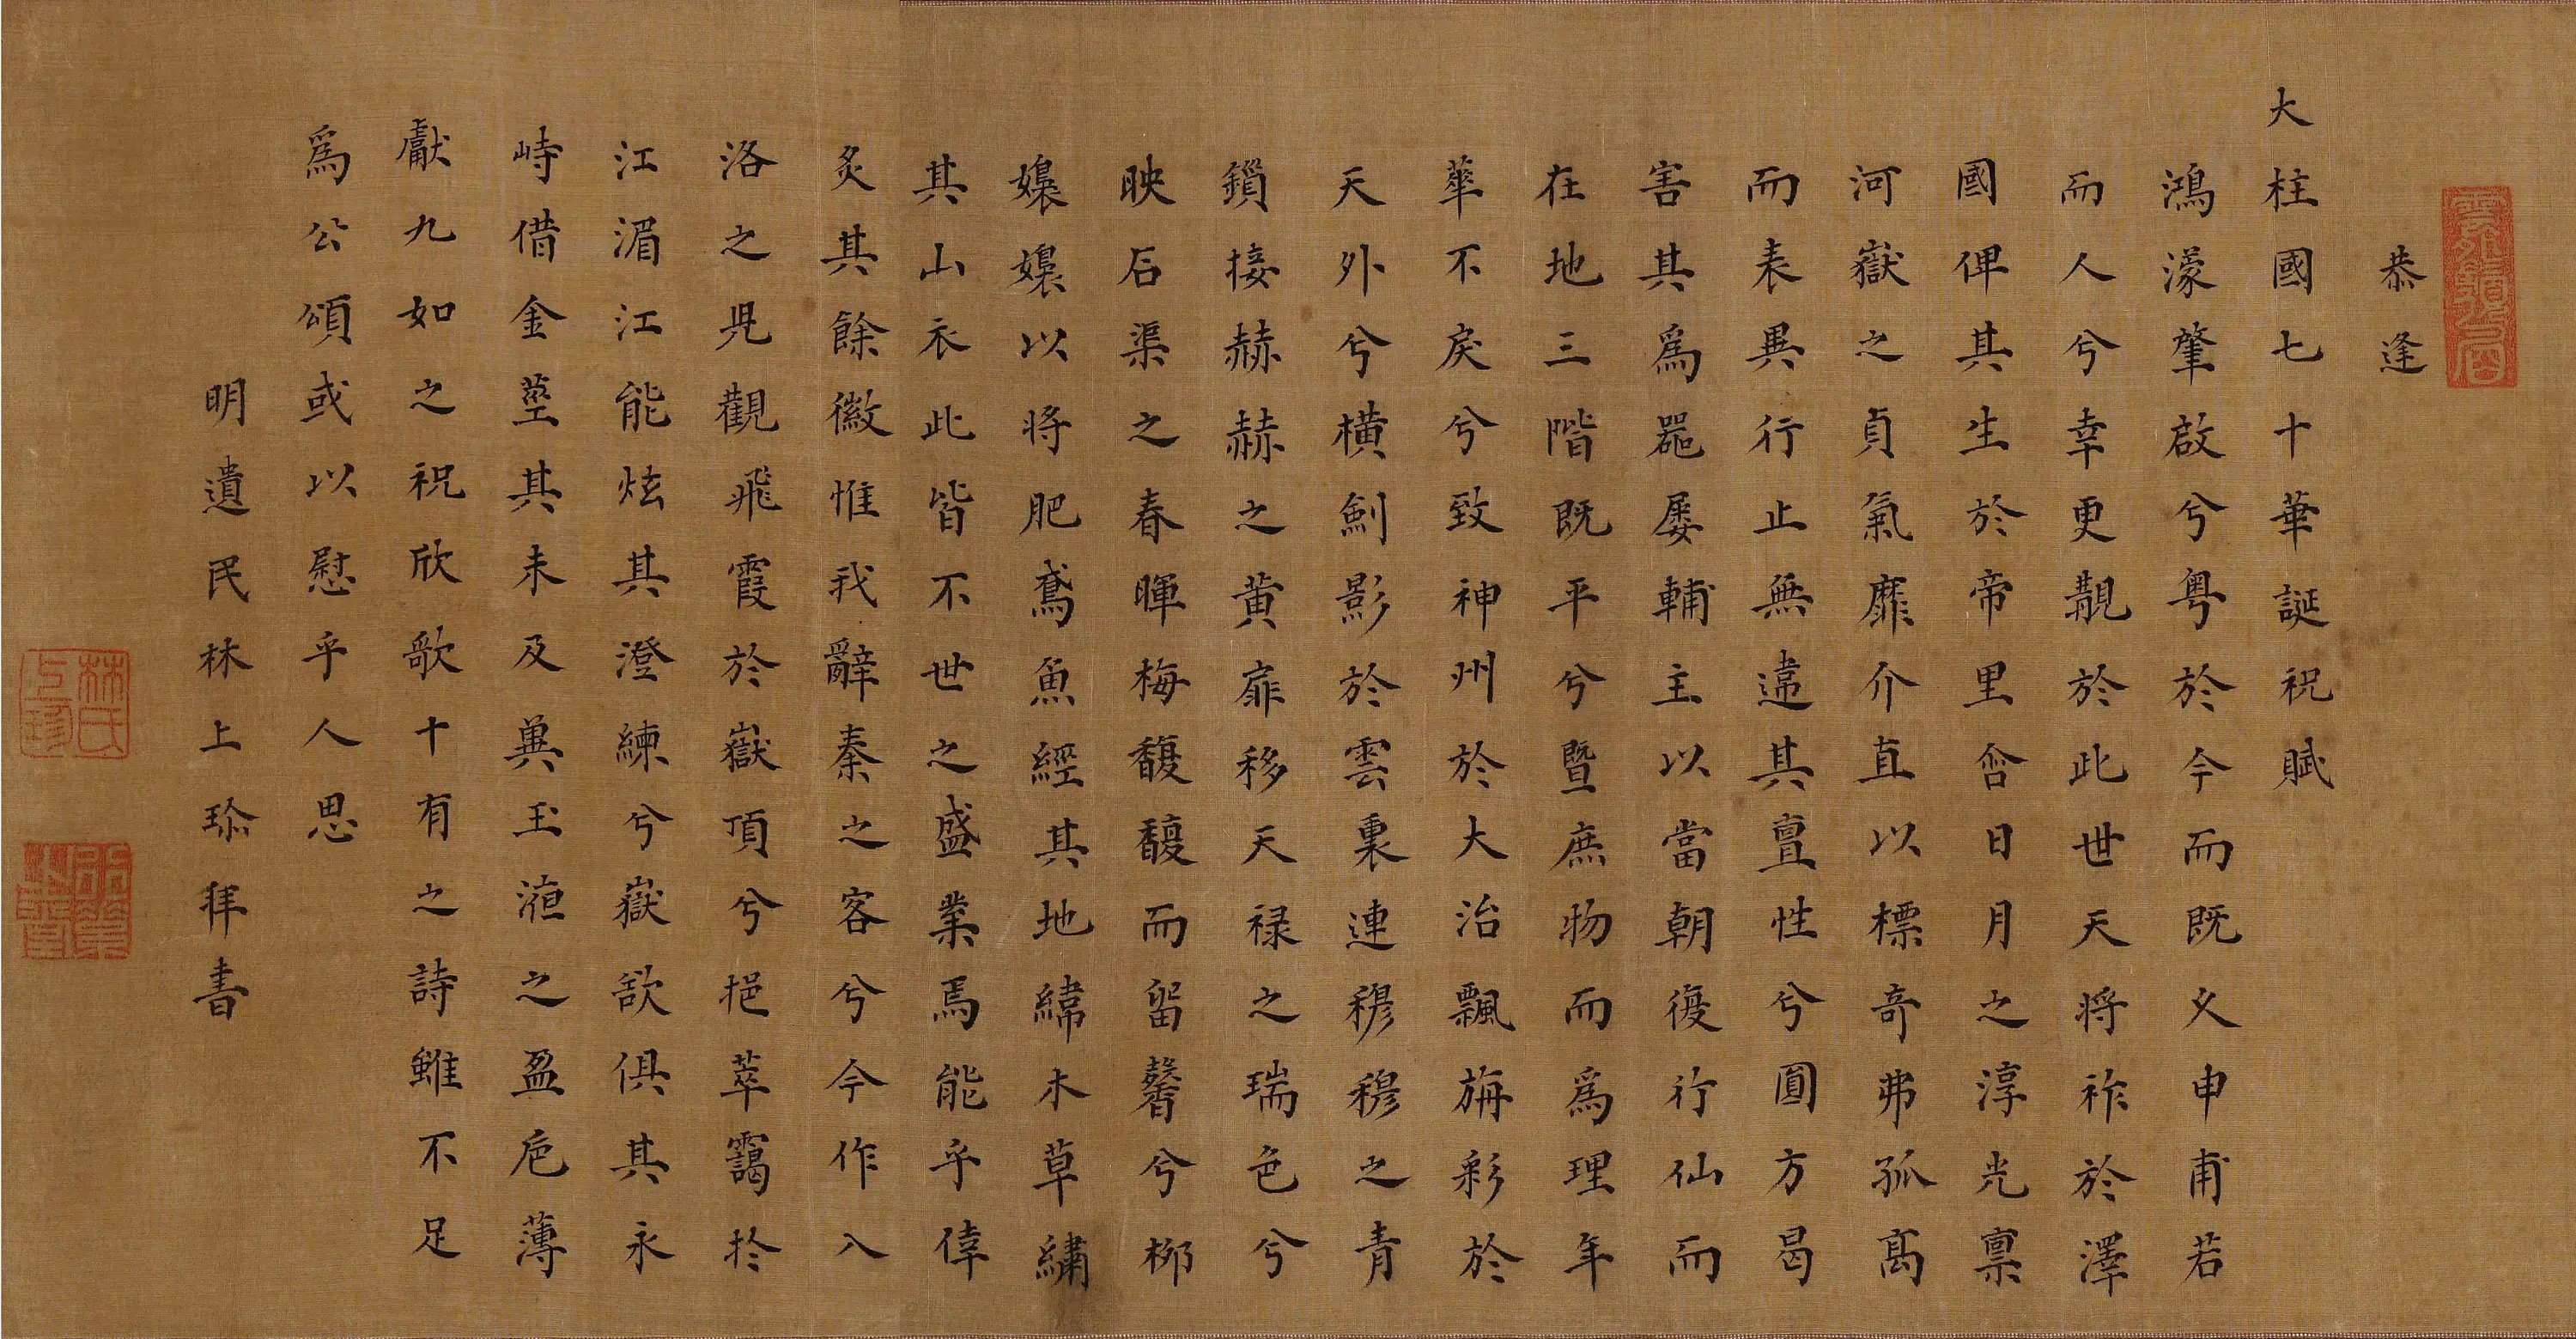 恭逢
大柱國七十華誕祝賦
鴻濛肇啟兮粵於今而既文申甫若
而人兮幸更覩於此世天將祚於澤
國俾其生於帝里含日月之淳光禀
河嶽之貞氣靡介直以標奇弗孤高
而表異行止無違其亶性兮圓方曷
害其為器屡輔主以當朝復行仙而
在地三階既平兮暨庶物而為理年
華不戾兮致神州於大治飄旃彩於
天外兮橫劍影於雲裏連穆穆之青
鎖接赫赫之黄扉移天祿之瑞色兮
映后渠之春暉梅馥馥而留馨兮柳
嬝嬝以將肥鳶魚經其地緯木草繡
其山衣此皆不世之盛業焉能乎倖
炙其餘徽惟我辭秦之客兮今作八
洛之見觀飛霞於嶽頂兮挹萃靄於
江湄江能炫其澄練兮嶽欲俱其永
峙借金莖其未及兼玉滬之盈卮薄
獻九如之祝欣歌十有之詩雖不足
為公頌或以慰乎人思
明遺民林上珎拜書
林氏上珍